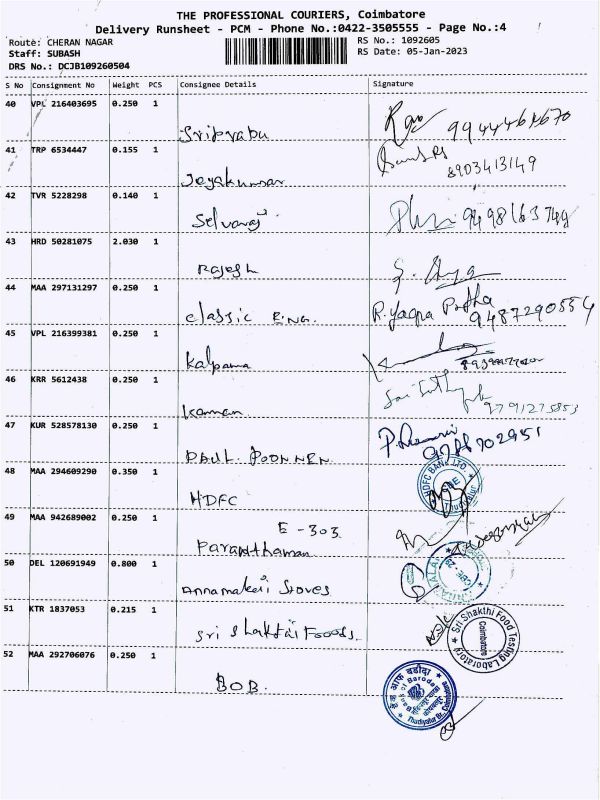 THE PROFESSIONAL COURIERS, Coimbatore
Delivery Runsheet - PCM - Phone No.:0422-3505555 - Page No.:4
Route: CHERAN NAGAR RS No.: 1092605
Staff: SUBASH RS Date: 05-Jan-2023
DRS No.: DCJB109260504
S No Consignment No Weight PCS Consignee Details Signature
40 VPL 216403695 0.250 1
Sriprabu
41 TRP 6534447 0.155 1
8903413149
Jeyakumar
42 TVR 5228298 0.140 1
Selvaraj
43 HRD 50281075 2.030 1
Rajesh
44 MAA 297131297 0.250 1
classic ENG. 9487290554
45 VPL 216399381 0.250 1
Kalpana
46 KRR 5612438 0.250 1
Kannan 9791275853
47 KUR 528578130 0.250 1
PAUL POONNEN
48 MAA 294609290 0.350 1 HDFC BANK LTD.
HDFC
49 MAA 942689002 0.250 1
E-303
Paranthaman
50 DEL 120691949 0.800 1
Annamalai Stoves
51 KTR 1837053 0.215 1 Sri Shakthi Food Testing Laboratory
Coimbatore
Sri Shakthi Foods.
52 MAA 292706076 0.250 1
BOB.
बैंक ऑफ़ बड़ौदा
Bank of Baroda